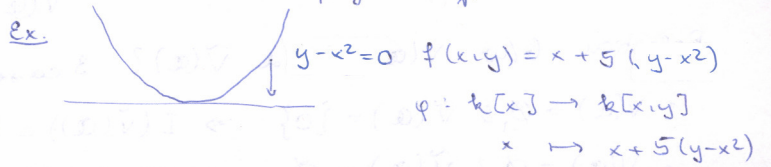 Ex.
y-x²=0 f(x,y) = x + 5(y-x²)
φ: k[x] → k[x,y]
x ↦ x + 5(y-x²)